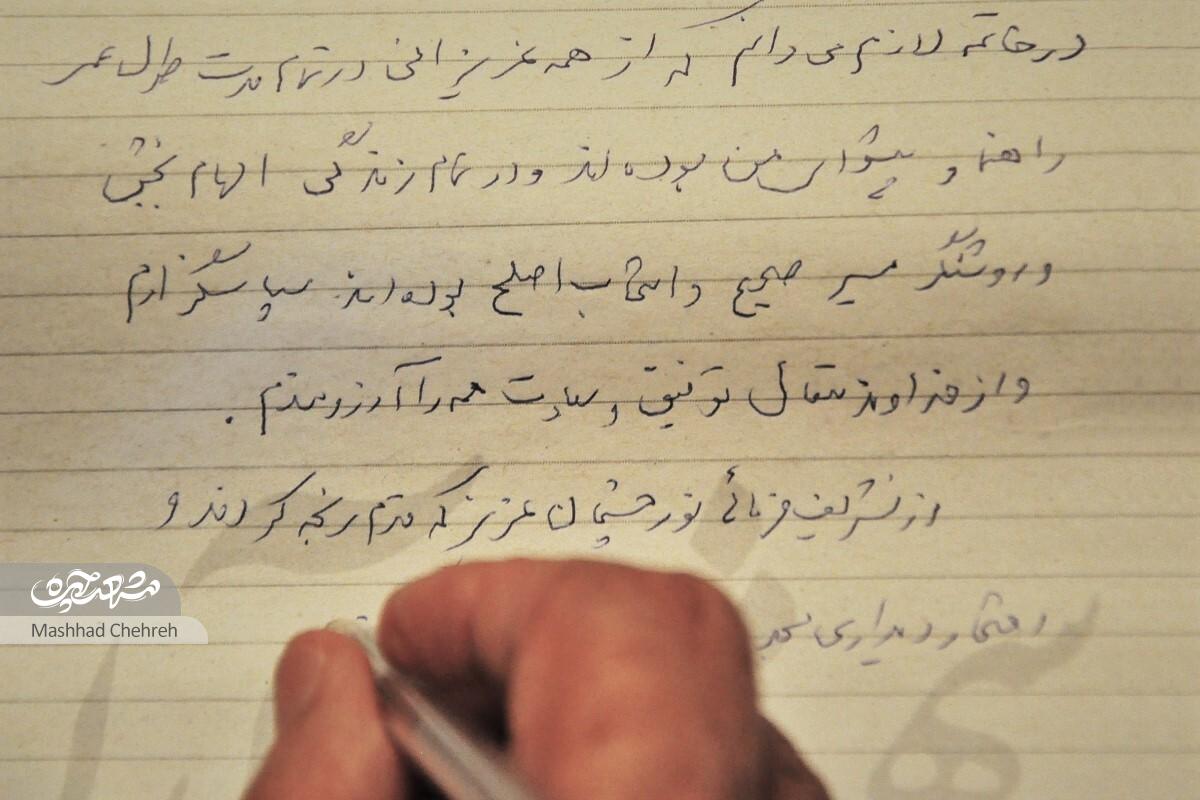 در خاتمه لازم می دانم که از همه عزیزانی در تمام مدت طول عمر
راهنما و پیشوای من بوده اند و در تمام زندگی الهام بخش
و روشنگر مسیر صحیح و انتخاب اصلح بوده اند سپاسگزارم
و از خداوند متعال توفیق و سعادت همه را آرزومندم .
از تشریف فرمائی نور چشمان عزیز که قدم رنجه کردند و
افتخار دیداری
مشهد چهره
Mashhad Chehreh